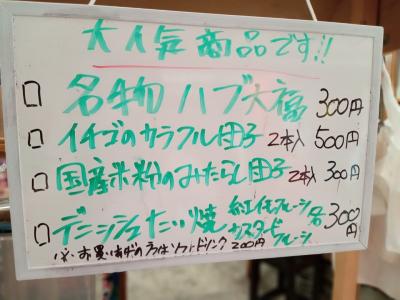 大人気商品です!!
□ 名物ハブ大福 300円
□ イチゴのカラフル団子 2本入 500円
□ 国産米粉のみたらし団子 2本入 300円
□ デニッシュたい焼 紅イモフレーン カスタード フレーン 各300円
お買いあげの方はソフトドリンク200円